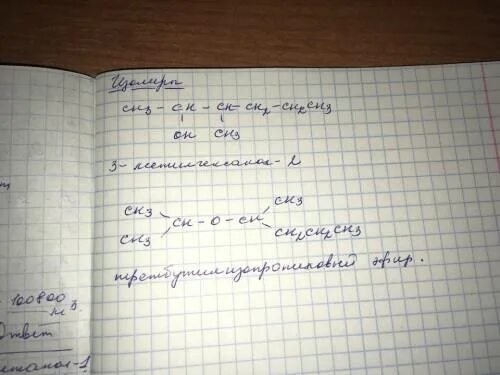 Изомеры
CH3 - CH - CH - CH2 - CH2CH3
OH CH3
3-метилгексанол-2
CH3 CH3
CH - O - CH
CH3 CH2CH2CH3
третбутилизопропиловый эфир.
100800
м3
Ответ